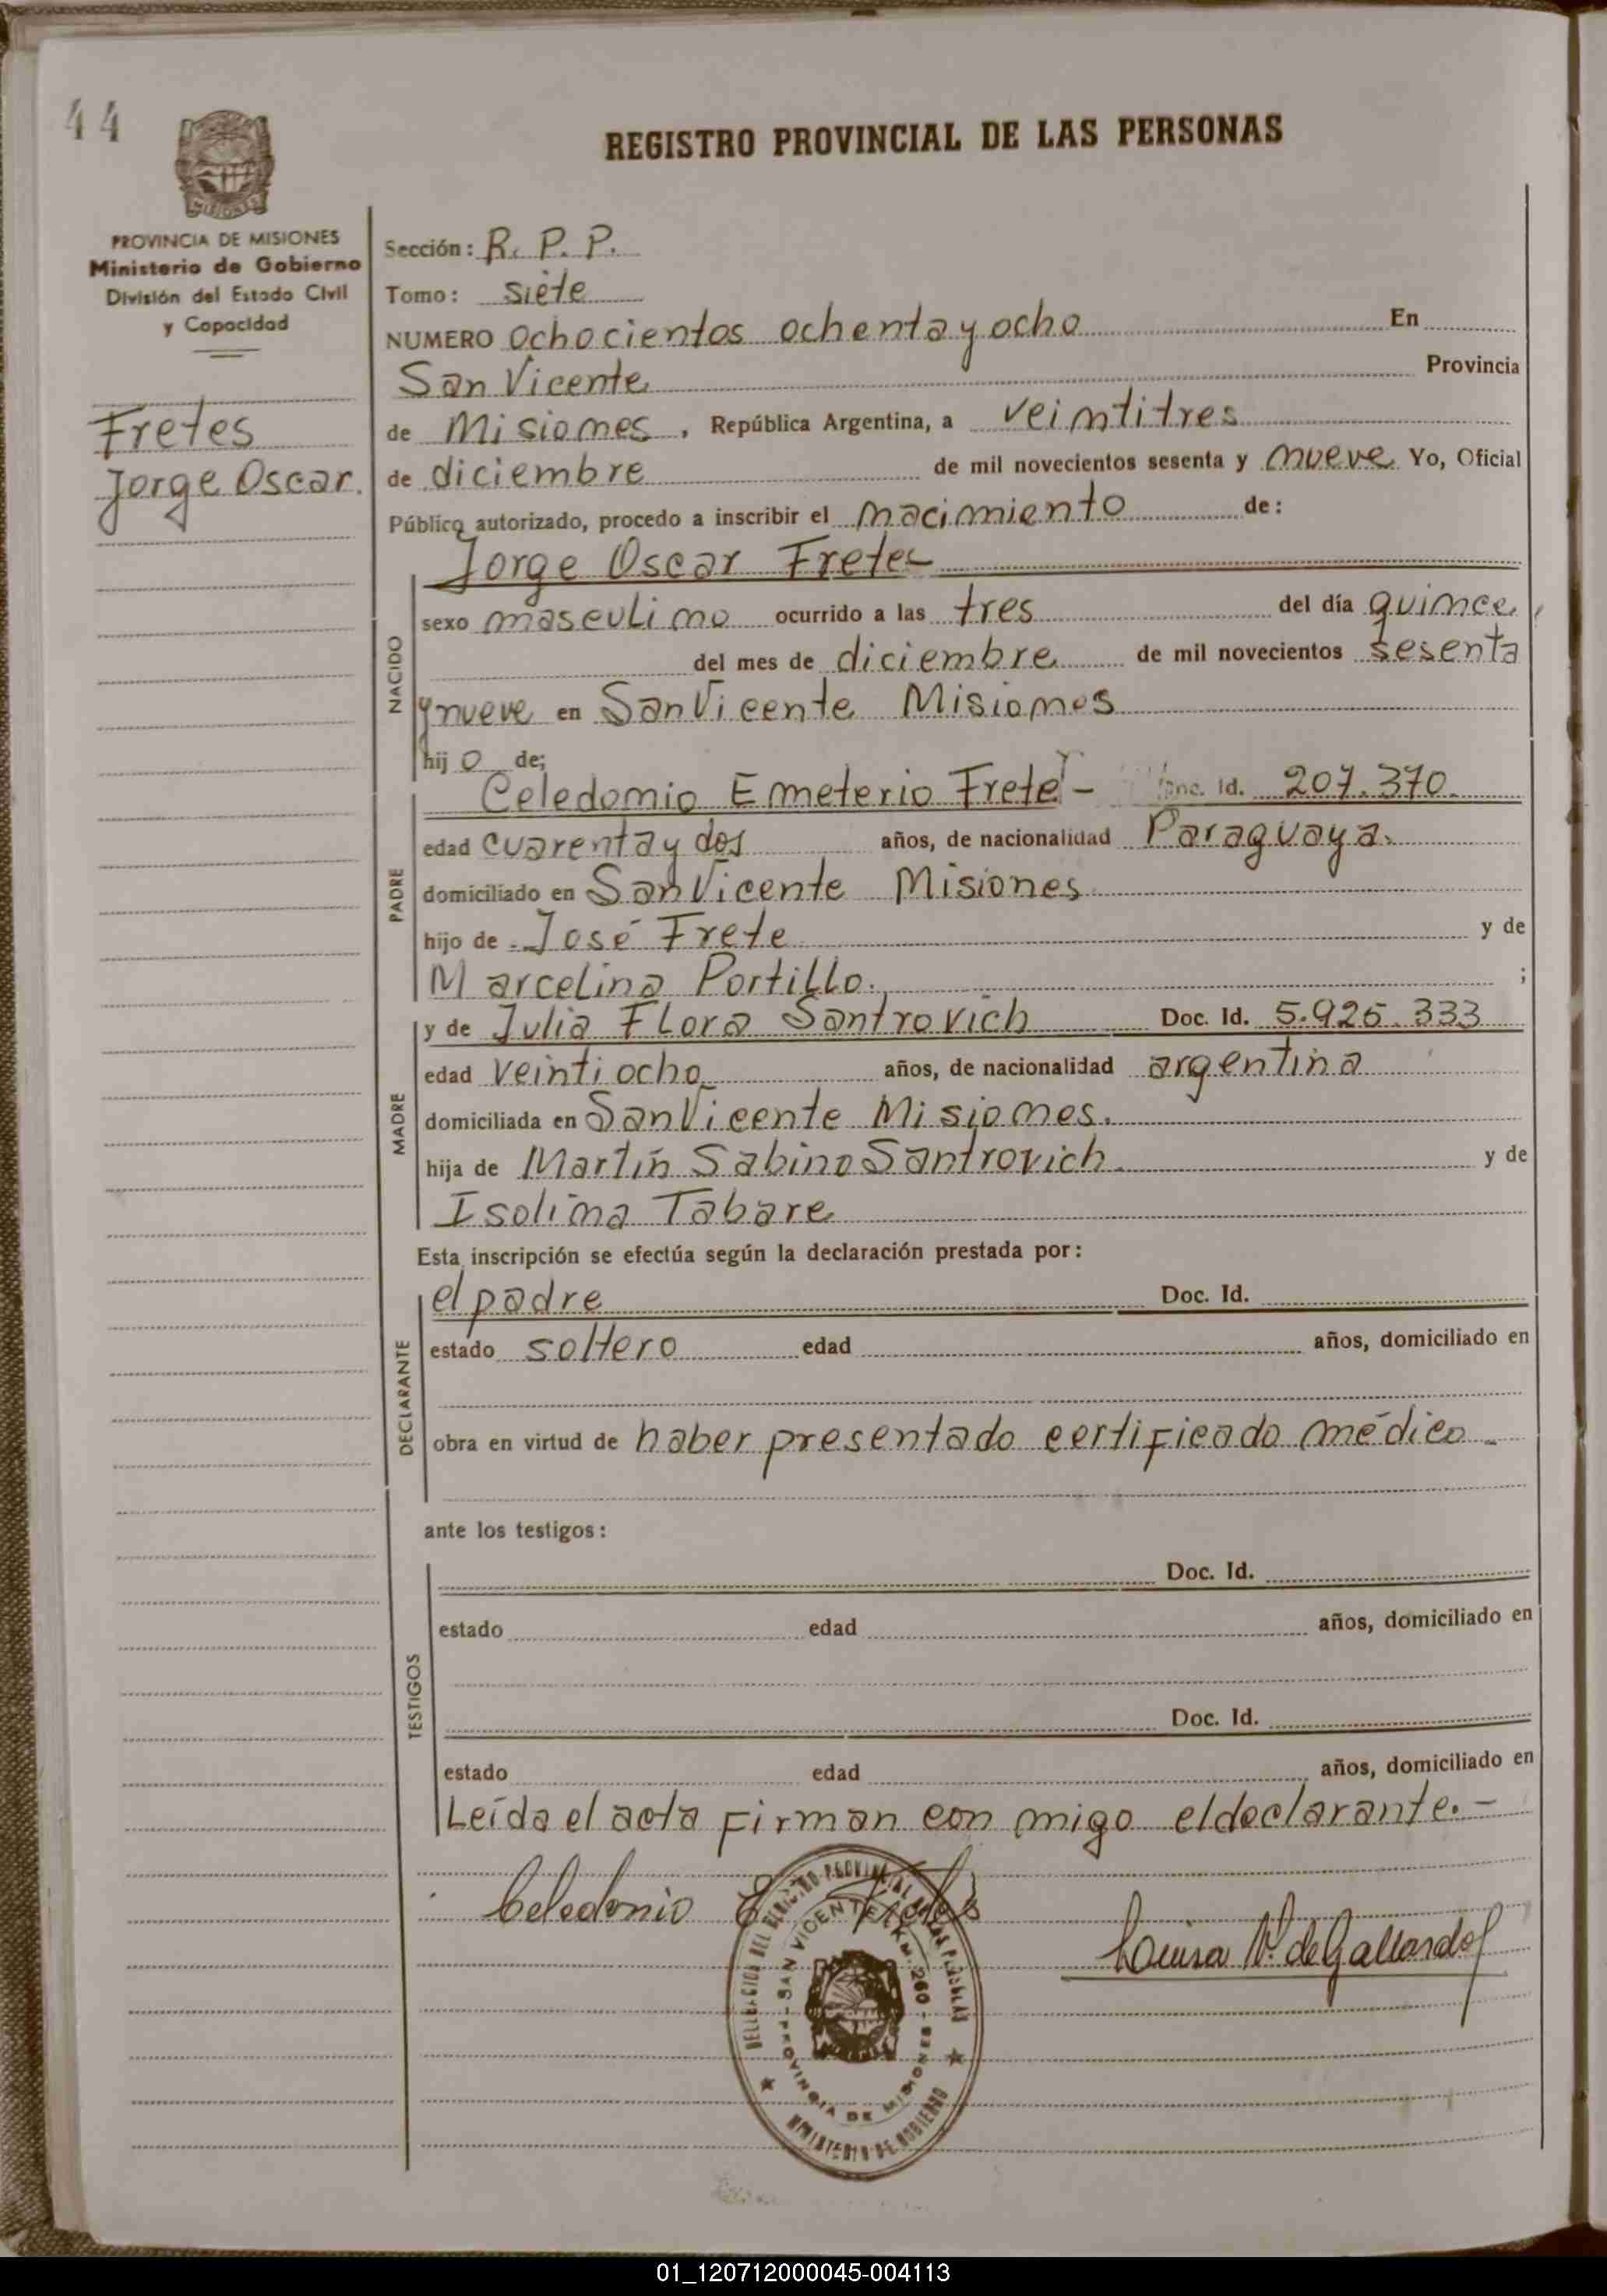 44
REGISTRO PROVINCIAL DE LAS PERSONAS
MISIONES
PROVINCIA DE MISIONES
Ministerio de Gobierno
División del Estado Civil
y Capacidad
Fretes
Jorge Oscar.
Sección: R. P. P.
Tomo: siete
NUMERO ochocientos ochenta y ocho En
San Vicente Provincia
de Misiones, República Argentina, a veintitres
de diciembre de mil novecientos sesenta y nueve Yo, Oficial
Público autorizado, procedo a inscribir el nacimiento de:
Jorge Oscar Fretes
NACIDO
sexo masculino ocurrido a las tres del día quince,
del mes de diciembre de mil novecientos sesenta
y nueve en San Vicente Misiones
hijo de;
PADRE
Celedonio Emeterio Frete - Id. 207.370.
edad cuarenta y dos años, de nacionalidad Paraguaya.
domiciliado en San Vicente Misiones
hijo de José Frete y de
Marcelina Portillo. ;
MADRE
y de Julia Flora Santrovich Doc. Id. 5.925.333
edad veintiocho años, de nacionalidad argentina
domiciliada en San Vicente Misiones.
hija de Martín Sabino Santrovich. y de
Isolina Tabare
Esta inscripción se efectúa según la declaración prestada por:
DECLARANTE
el padre Doc. Id.
estado soltero edad años, domiciliado en
obra en virtud de haber presentado certificado médico -
ante los testigos:
TESTIGOS
Doc. Id.
estado edad años, domiciliado en
Doc. Id.
estado edad años, domiciliado en
Leída el acta firman con migo el declarante. -
Celedonio E Fretes
Luisa N. de Gallardo
SAN VICENTE KM. 260 - PROVINCIA DE MISIONES
MINISTERIO DE GOBIERNO
01_120712000045-004113